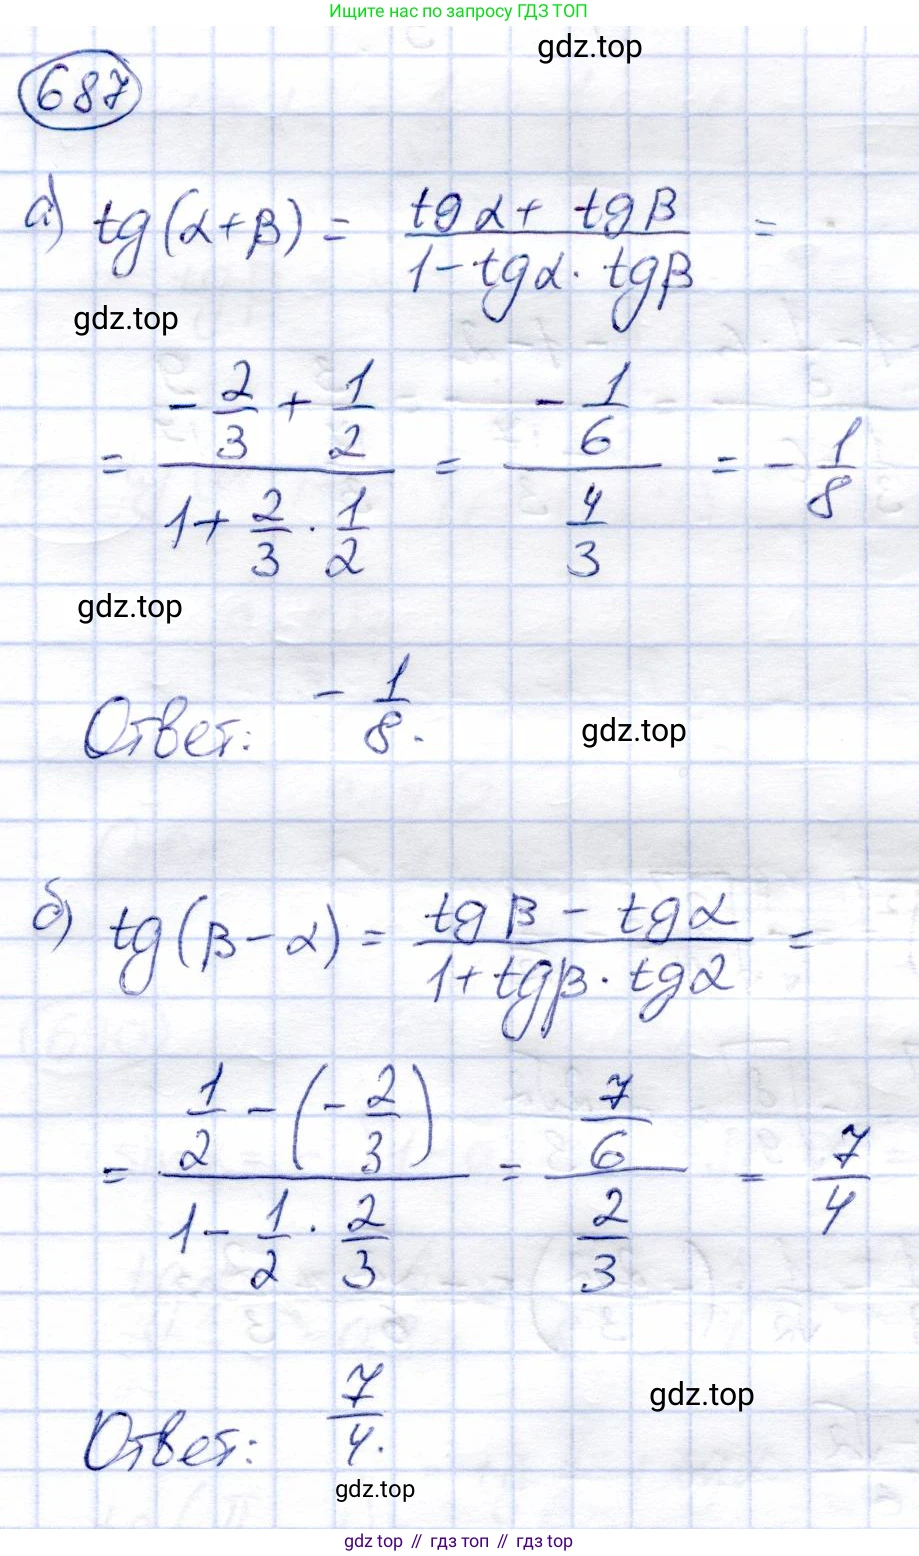 Ищите нас по запросу ГДЗ ТОП
gdz.top
687
а) tg(α+β) = (tgα + tgβ)/(1 - tgα · tgβ) =
gdz.top
= (-2/3 + 1/2)/(1 + 2/3 · 1/2) = (-1/6)/(4/3) = -1/8
gdz.top
Ответ: -1/8.
gdz.top
б) tg(β-α) = (tgβ - tgα)/(1 + tgβ · tgα) =
= (1/2 - (-2/3))/(1 - 1/2 · 2/3) = (7/6)/(2/3) = 7/4
gdz.top
Ответ: 7/4.
gdz.top
gdz top // гдз топ // гдз top